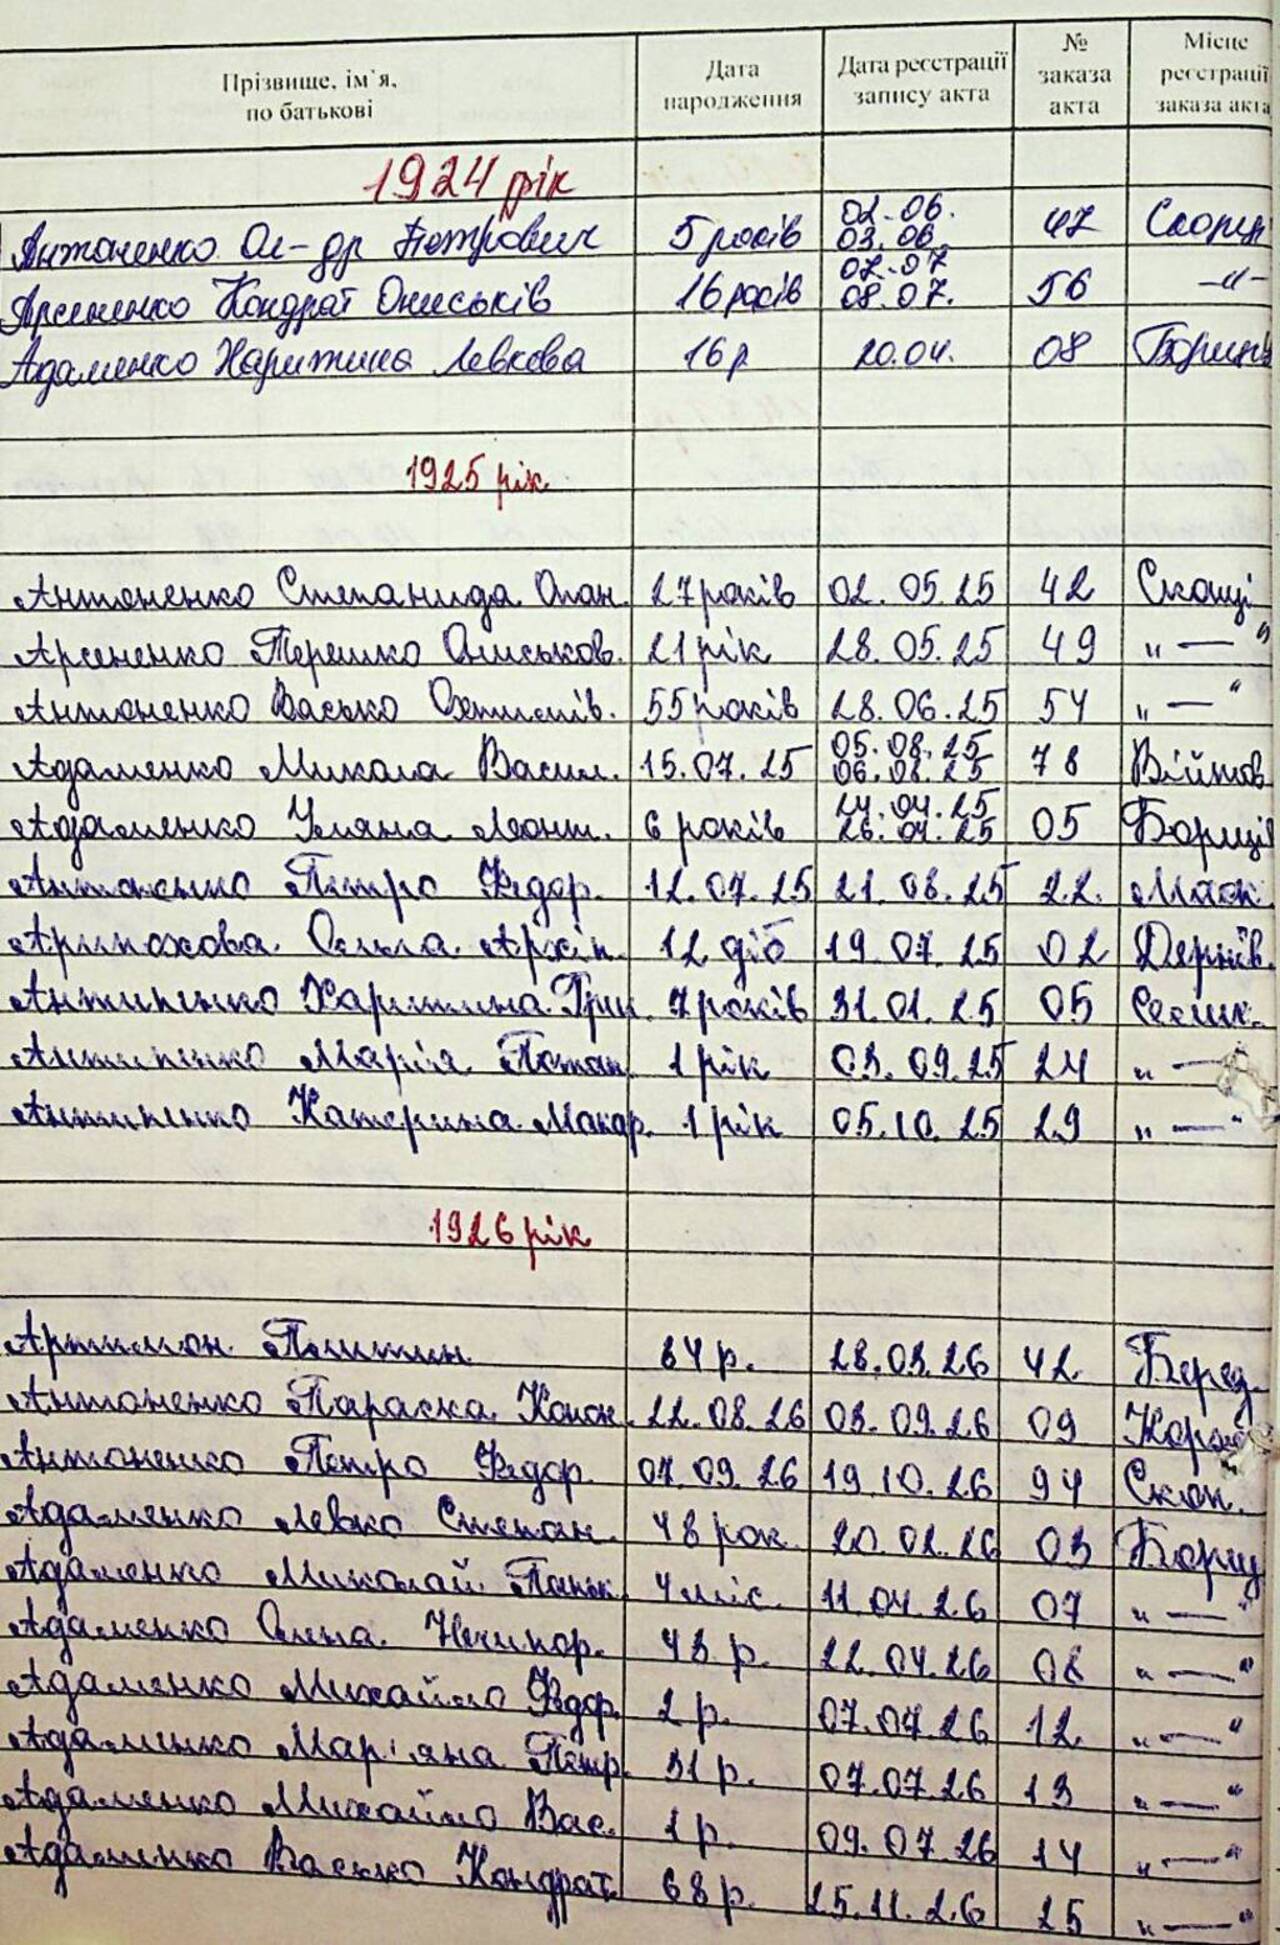 Прізвище, ім'я, по батькові | Дата народження | Дата реєстрації запису акта | № заказа акта | Місце реєстрації заказа акта
1924 рік
Антоненко Ол-др Петрович 5 років 02.06. 03.06. 47 Скопці
Арсененко Кондрат Ониськів 16 років 07.07 08.07. 56 -"-
Адаменко Харитина Левкова 16 р 20.04. 08
1925 рік
Антоненко Степанида Опан. 27 років 02.05.25 42 Скопці
Арсененко Терешко Ониськов. 21 рік 28.05.25 49 "—"
Антоненко Васько Охтисів. 55 років 28.06.25 54 "—"
Адаменко Микола Васил. 15.07.25 05.08.25 06.08.25 78 Війтов
Адаменко Уляна Леонт. 6 років 24.04.25 26.04.25 05 Борщів
Антоненко Петро Федор. 12.07.25 21.08.25 22.
Ольга Архіп. 12 діб 19.07.25 02 Дернів.
Антипенко Харитина Григ. 7 років 31.01.25 05
Антипенко Марія Потап. 1 рік 03.09.25 24 "—
Антипенко Катерина Макар. 1 рік 05.10.25 29 "—"
1926 рік
Артимон 64 р. 28.03.26 42 Беред.
Антоненко Параска Конон. 22.08.26 03.09.26 09
Антоненко Петро Федор. 07.09.26 19.10.26 94 Скоп.
Адаменко Левко Степан. 48 рок. 20.02.26 03 Борщ
Адаменко Миколай Паньк. 4 міс. 11.04.26 07 "—"
Адаменко Олена Нечипор. 43 р. 22.04.26 08 "—"
Адаменко Михайло Федор. 2 р. 07.07.26 12 "—"
Адаменко Мар'яна Петр. 31 р. 07.07.26 13 "—"
Адаменко Михайло Вас. 1 р. 09.07.26 14 "—"
Адаменко Васько Кондрат. 68 р. 25.11.26 25 "—"